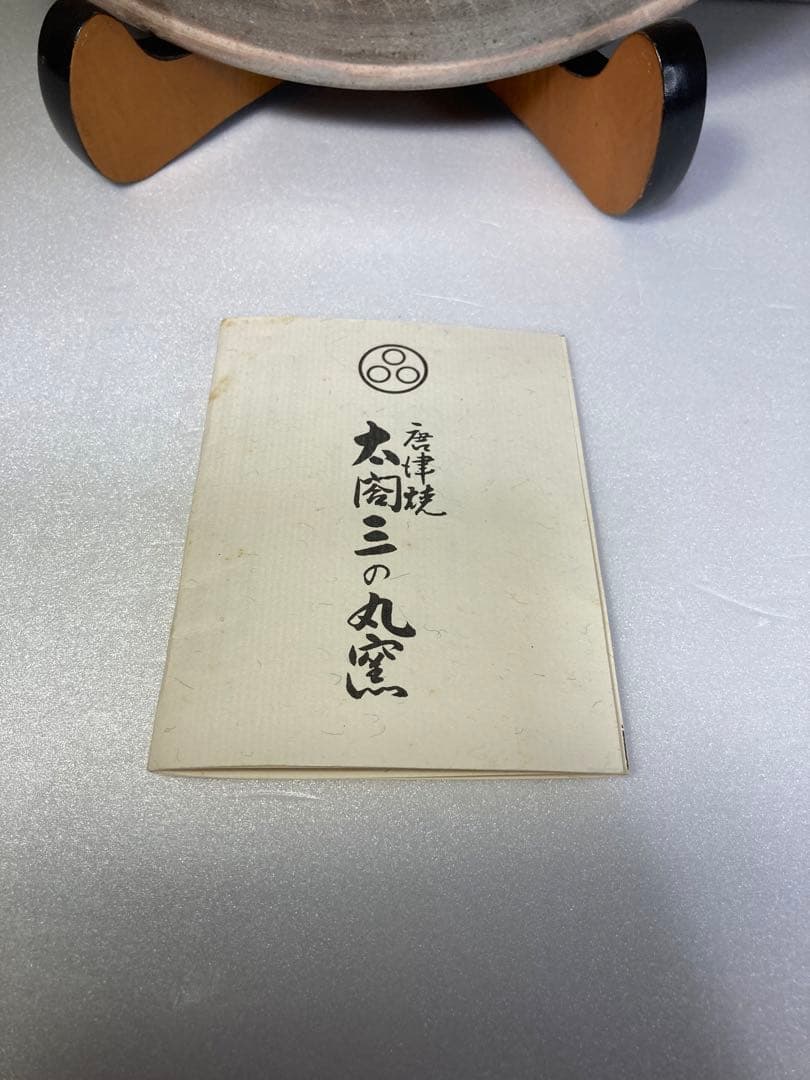 唐津焼
太閤三の丸窯